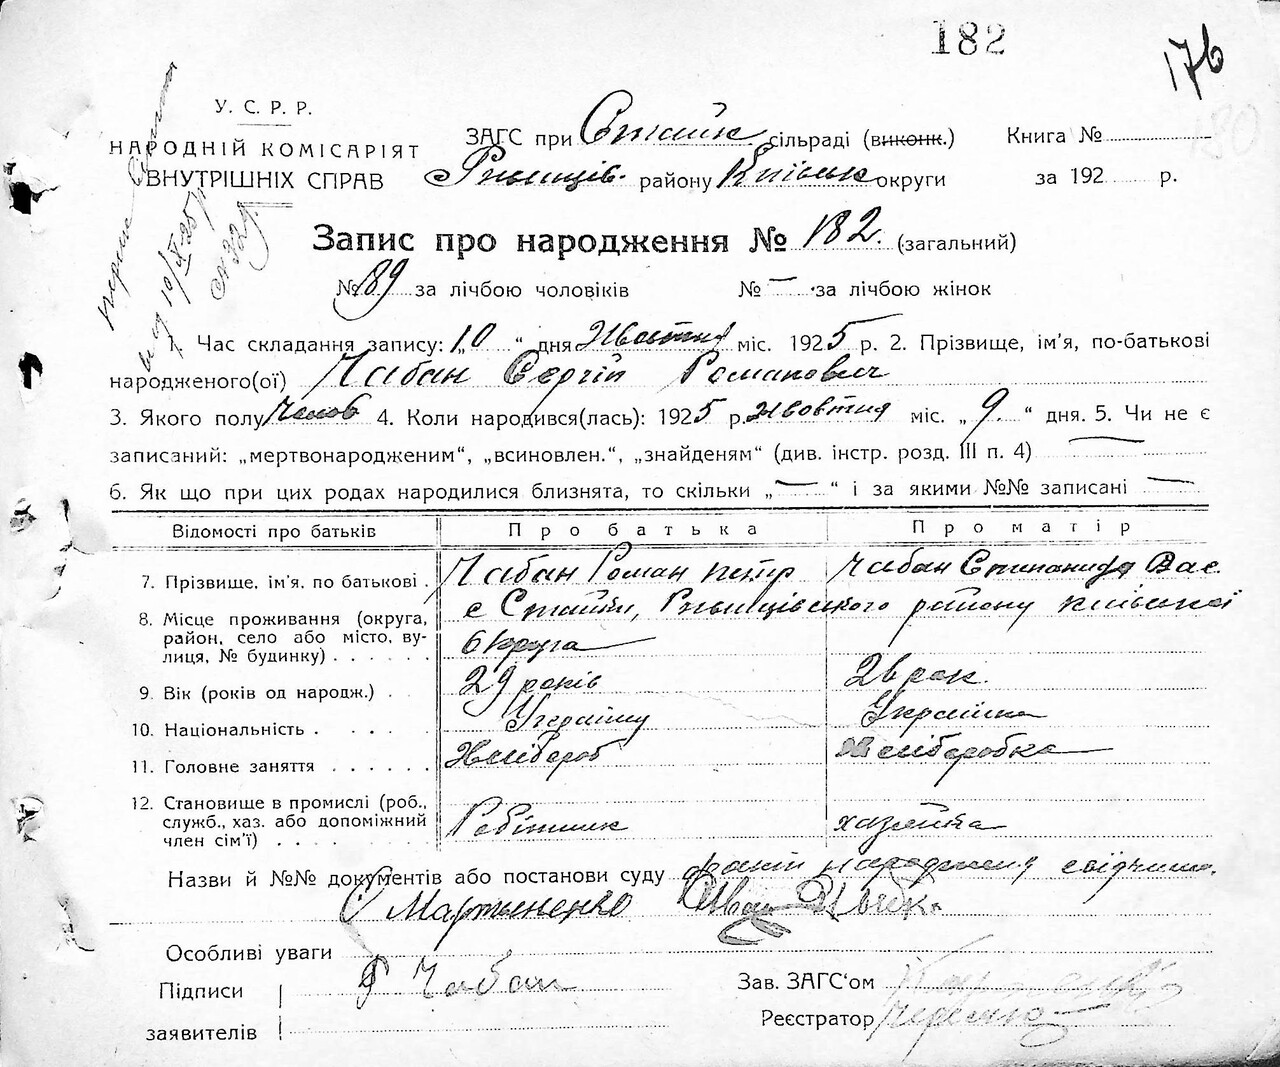 182
176
У. С. Р. Р.
НАРОДНІЙ КОМІСАРІЯТ
ВНУТРІШНІХ СПРАВ
ЗАГС при Стайк сільраді (виконк.)
Ржищів. району Київськ округи
Книга №
за 192 р.
Запис про народження № 182. (загальний)
№ 89 за лічбою чоловіків № — за лічбою жінок
Час складання запису: „10“ дня Жовтня міс. 1925 р. 2. Прізвище, ім'я, по-батькові
народженого(ої) Чабан Сергій Романович
3. Якого полу Чолов 4. Коли народився(лась): 1925 р. Жовтня міс. „9.“ дня. 5. Чи не є
записаний: „мертвонародженим“, „всиновлен.“, „знайденям“ (див. інстр. розд. III п. 4) —
6. Як що при цих родах народилися близнята, то скільки „—“ і за якими №№ записані —
Відомості про батьків Про батька Про матір
7. Прізвище, ім'я, по батькові . Чабан Роман Петр Чабан Степанида Вас.
8. Місце проживання (округа, район, село або місто, вулиця, № будинку) . . . . . . с Стайки, Ржищівського району Київської
округа
9. Вік (років од народж.) . . 29 років 26 рок.
10. Національність . . . . . Українец Українка
11. Головне заняття . . . . . . Хлібороб Хліборобка
12. Становище в промислі (роб., служб., хаз. або допоміжний член сім'ї) . . . . Робітник хазяйка
Назви й №№ документів або постанови суду факт народження свідчили.
С Мартыненко Иван
Особливі уваги
Підписи
заявителів
Р Чабан
Зав. ЗАГС'ом
Реєстратор